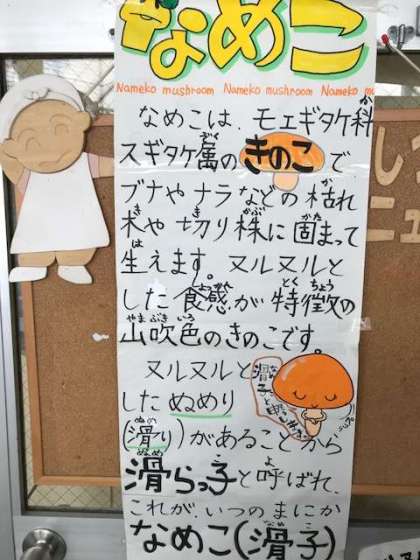 なめこ
Nameko mushroom Nameko mushroom Nameko mu
なめこは、モエギタケ科
スギタケ属のきのこで
ブナやナラなどの枯れ
木や切り株に固まって
生えます。ヌルヌルと
した食感が特徴の
山吹色のきのこです。
ヌルヌルと
したぬめり
(滑り)があることから
滑らっ子と呼ばれ、
これが、いつのまにか
なめこ(滑子)